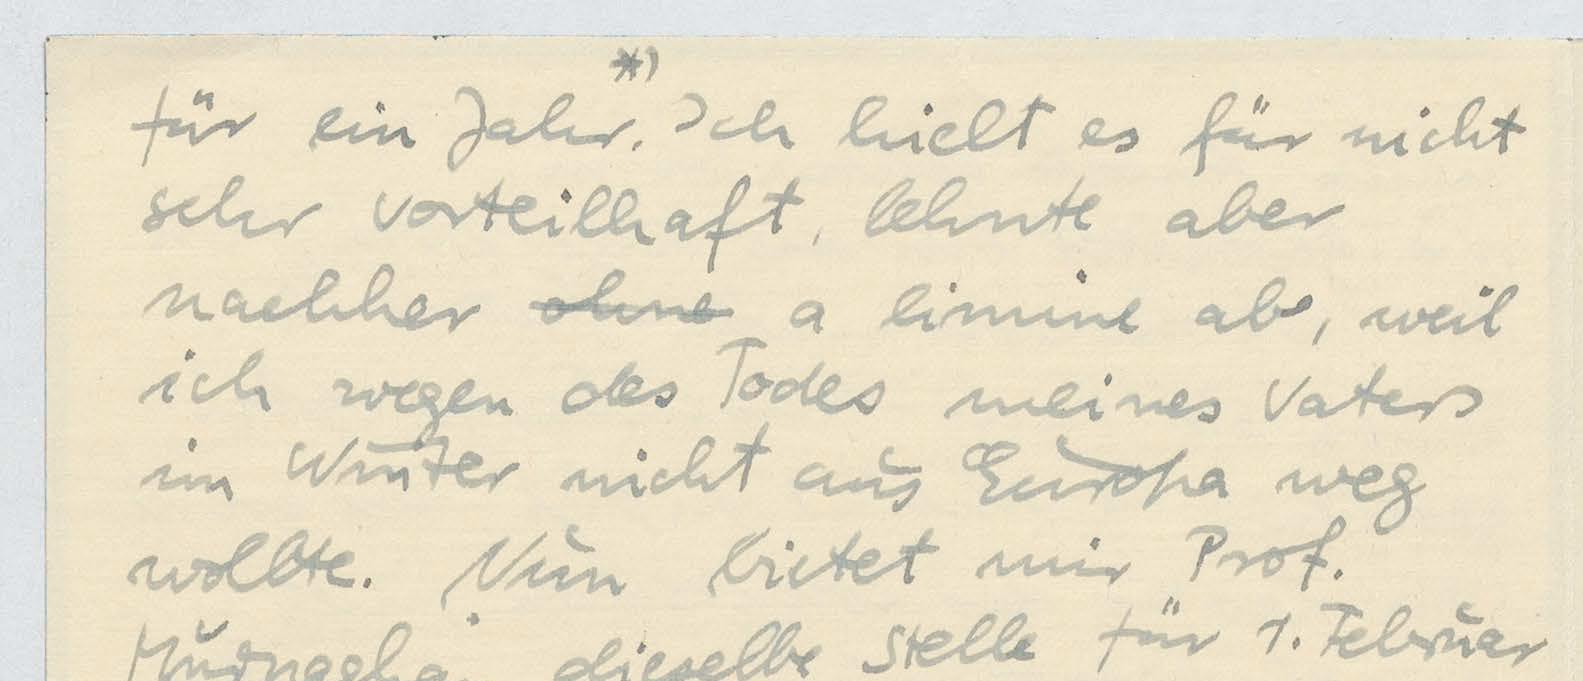 *)
für ein Jahr. Ich hielt es für nicht
sehr vorteilhaft, lehnte aber
nachher ohne a limine ab, weil
ich wegen des Todes meines Vaters
im Winter nicht aus Europa weg
wollte. Nun bietet mir Prof.
dieselbe Stelle für 1. Februar